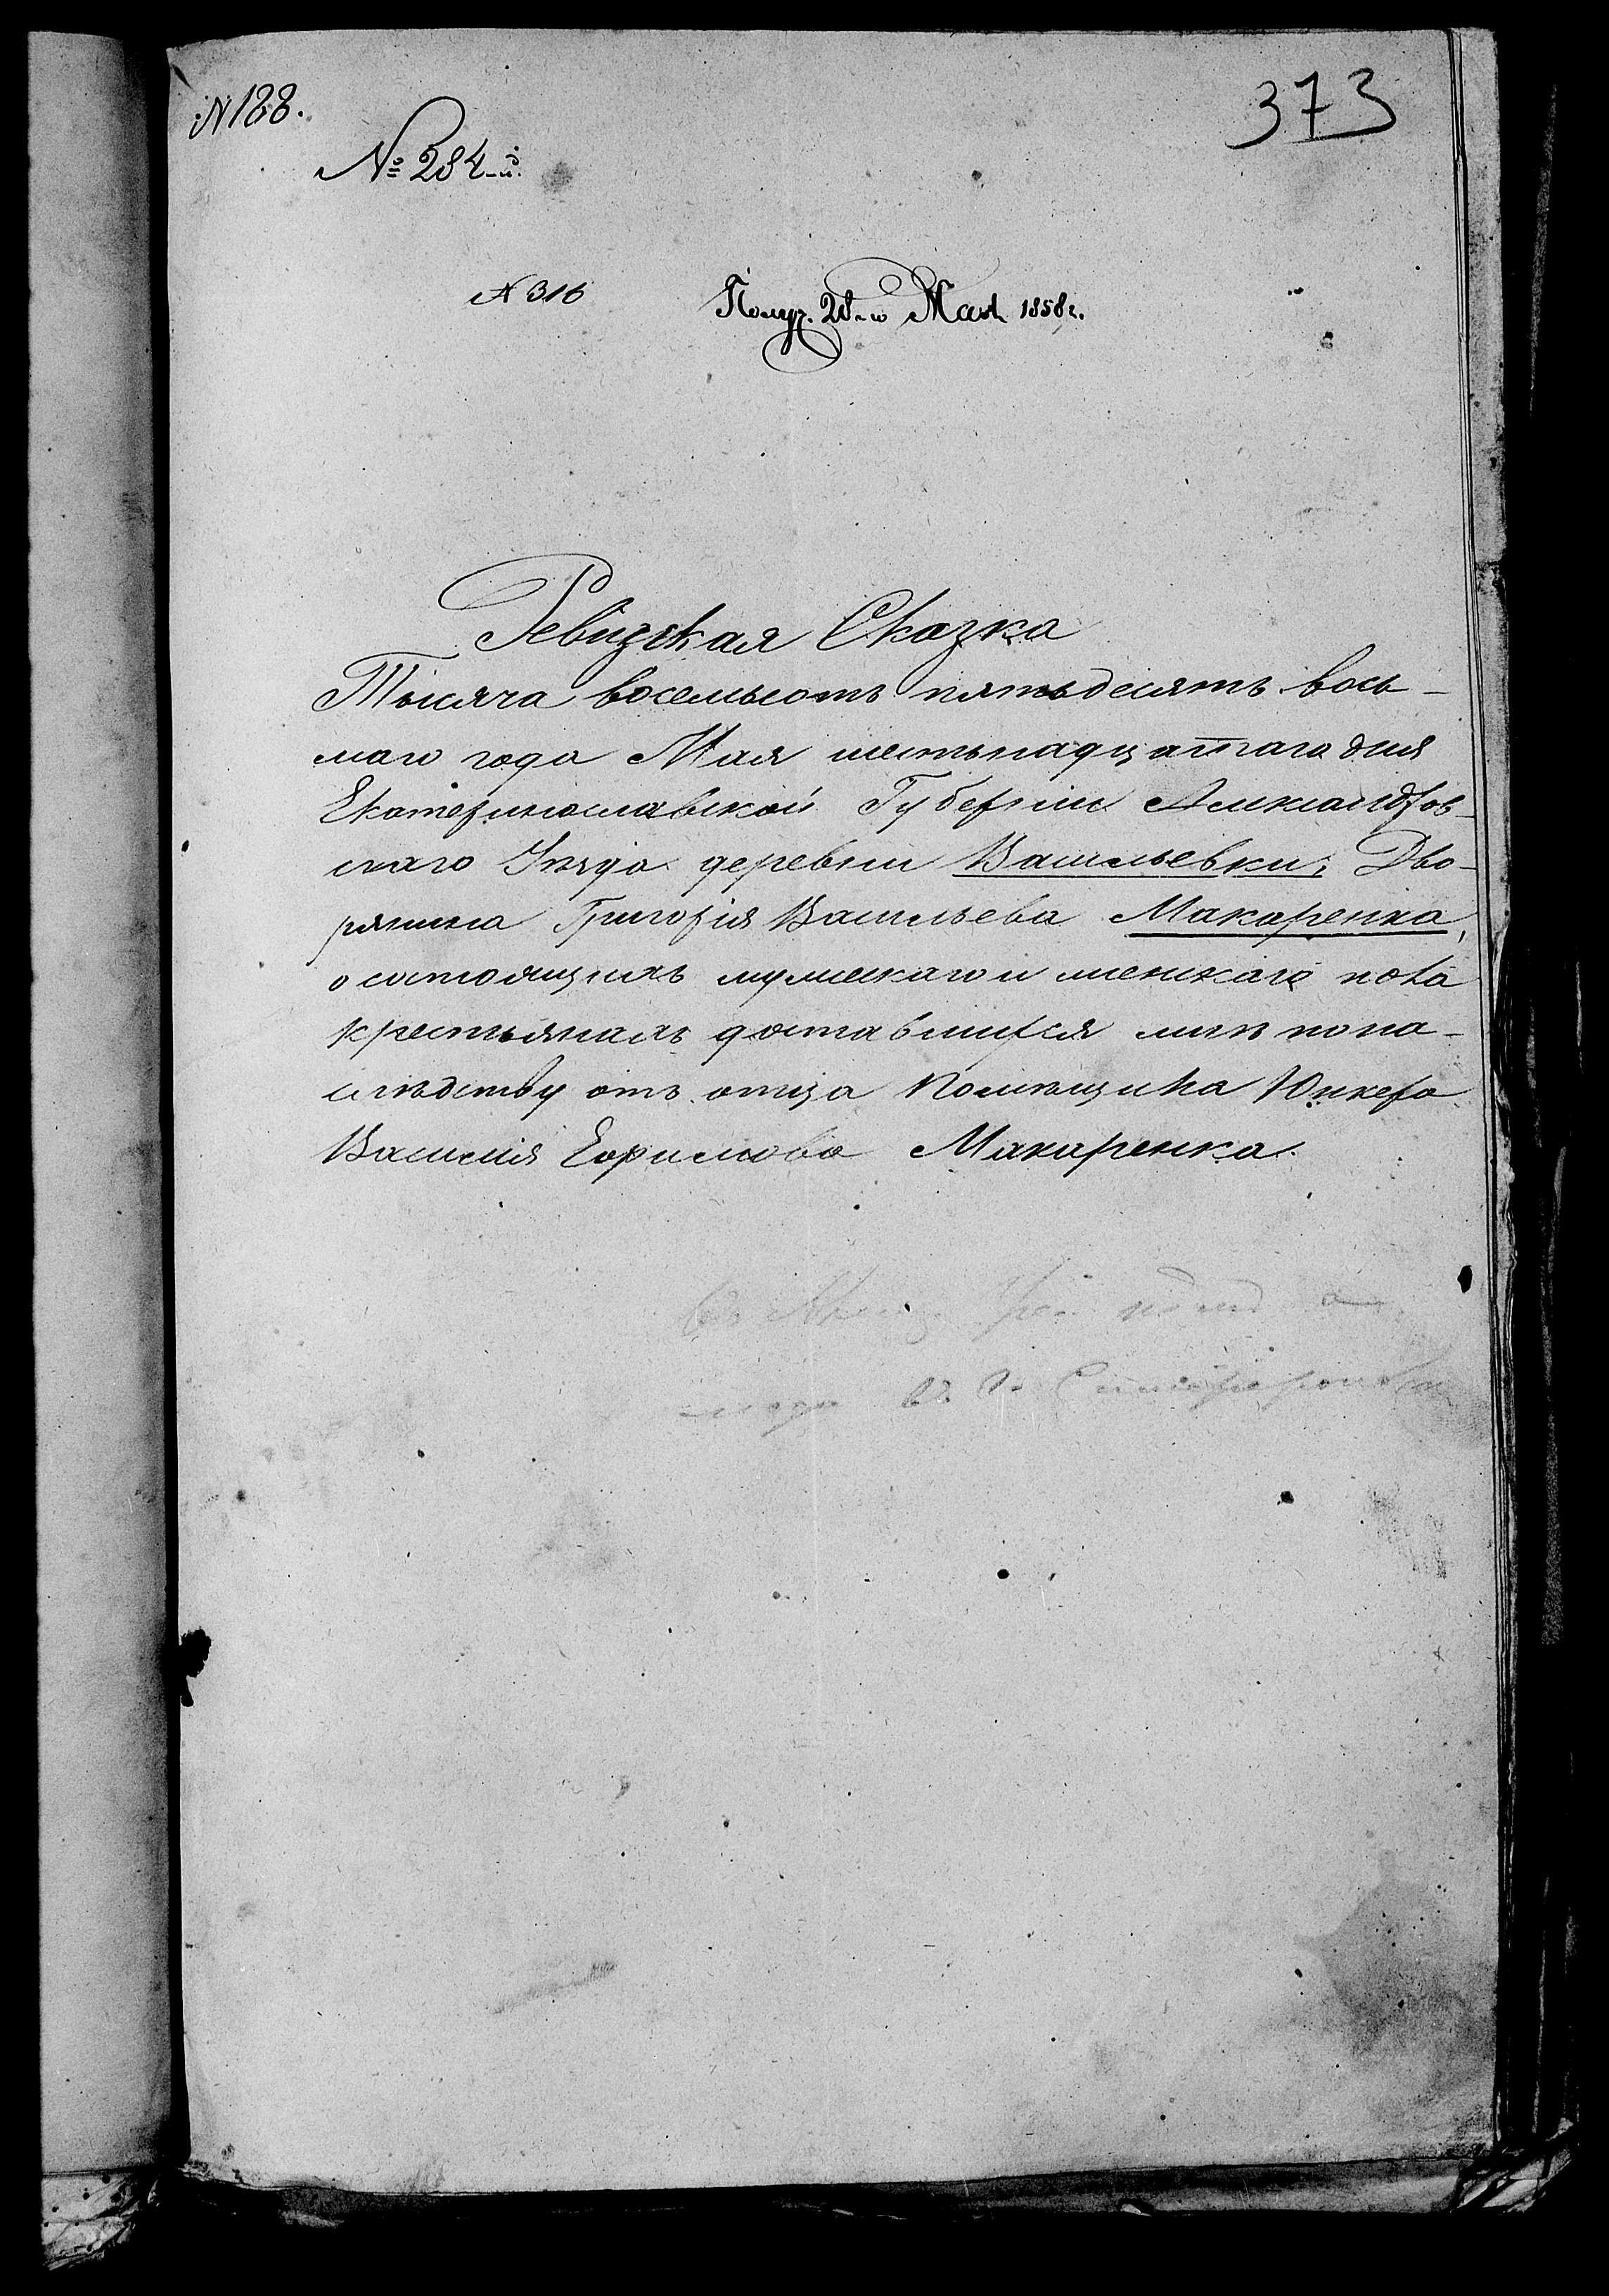 N 188.
373
№ 284-й.
N 316
Получ. 28-го Мая 1858 г.
Ревизская Сказка
Тысяча восемьсотъ пятьдесятъ вось-
маго года Мая шестьнадцатаго дня
Екатеринославской Губерніи Александров-
скаго Уѣзда деревни Васильевки, Дво-
рянина Григорія Васильева Макаренка,
о состоящихъ мужескаго и женскаго пола
крестьянахъ доставшихся мнѣ по на-
слѣдству отъ отца Помѣщика Юнкера
Василія Ефимова Макаренка.